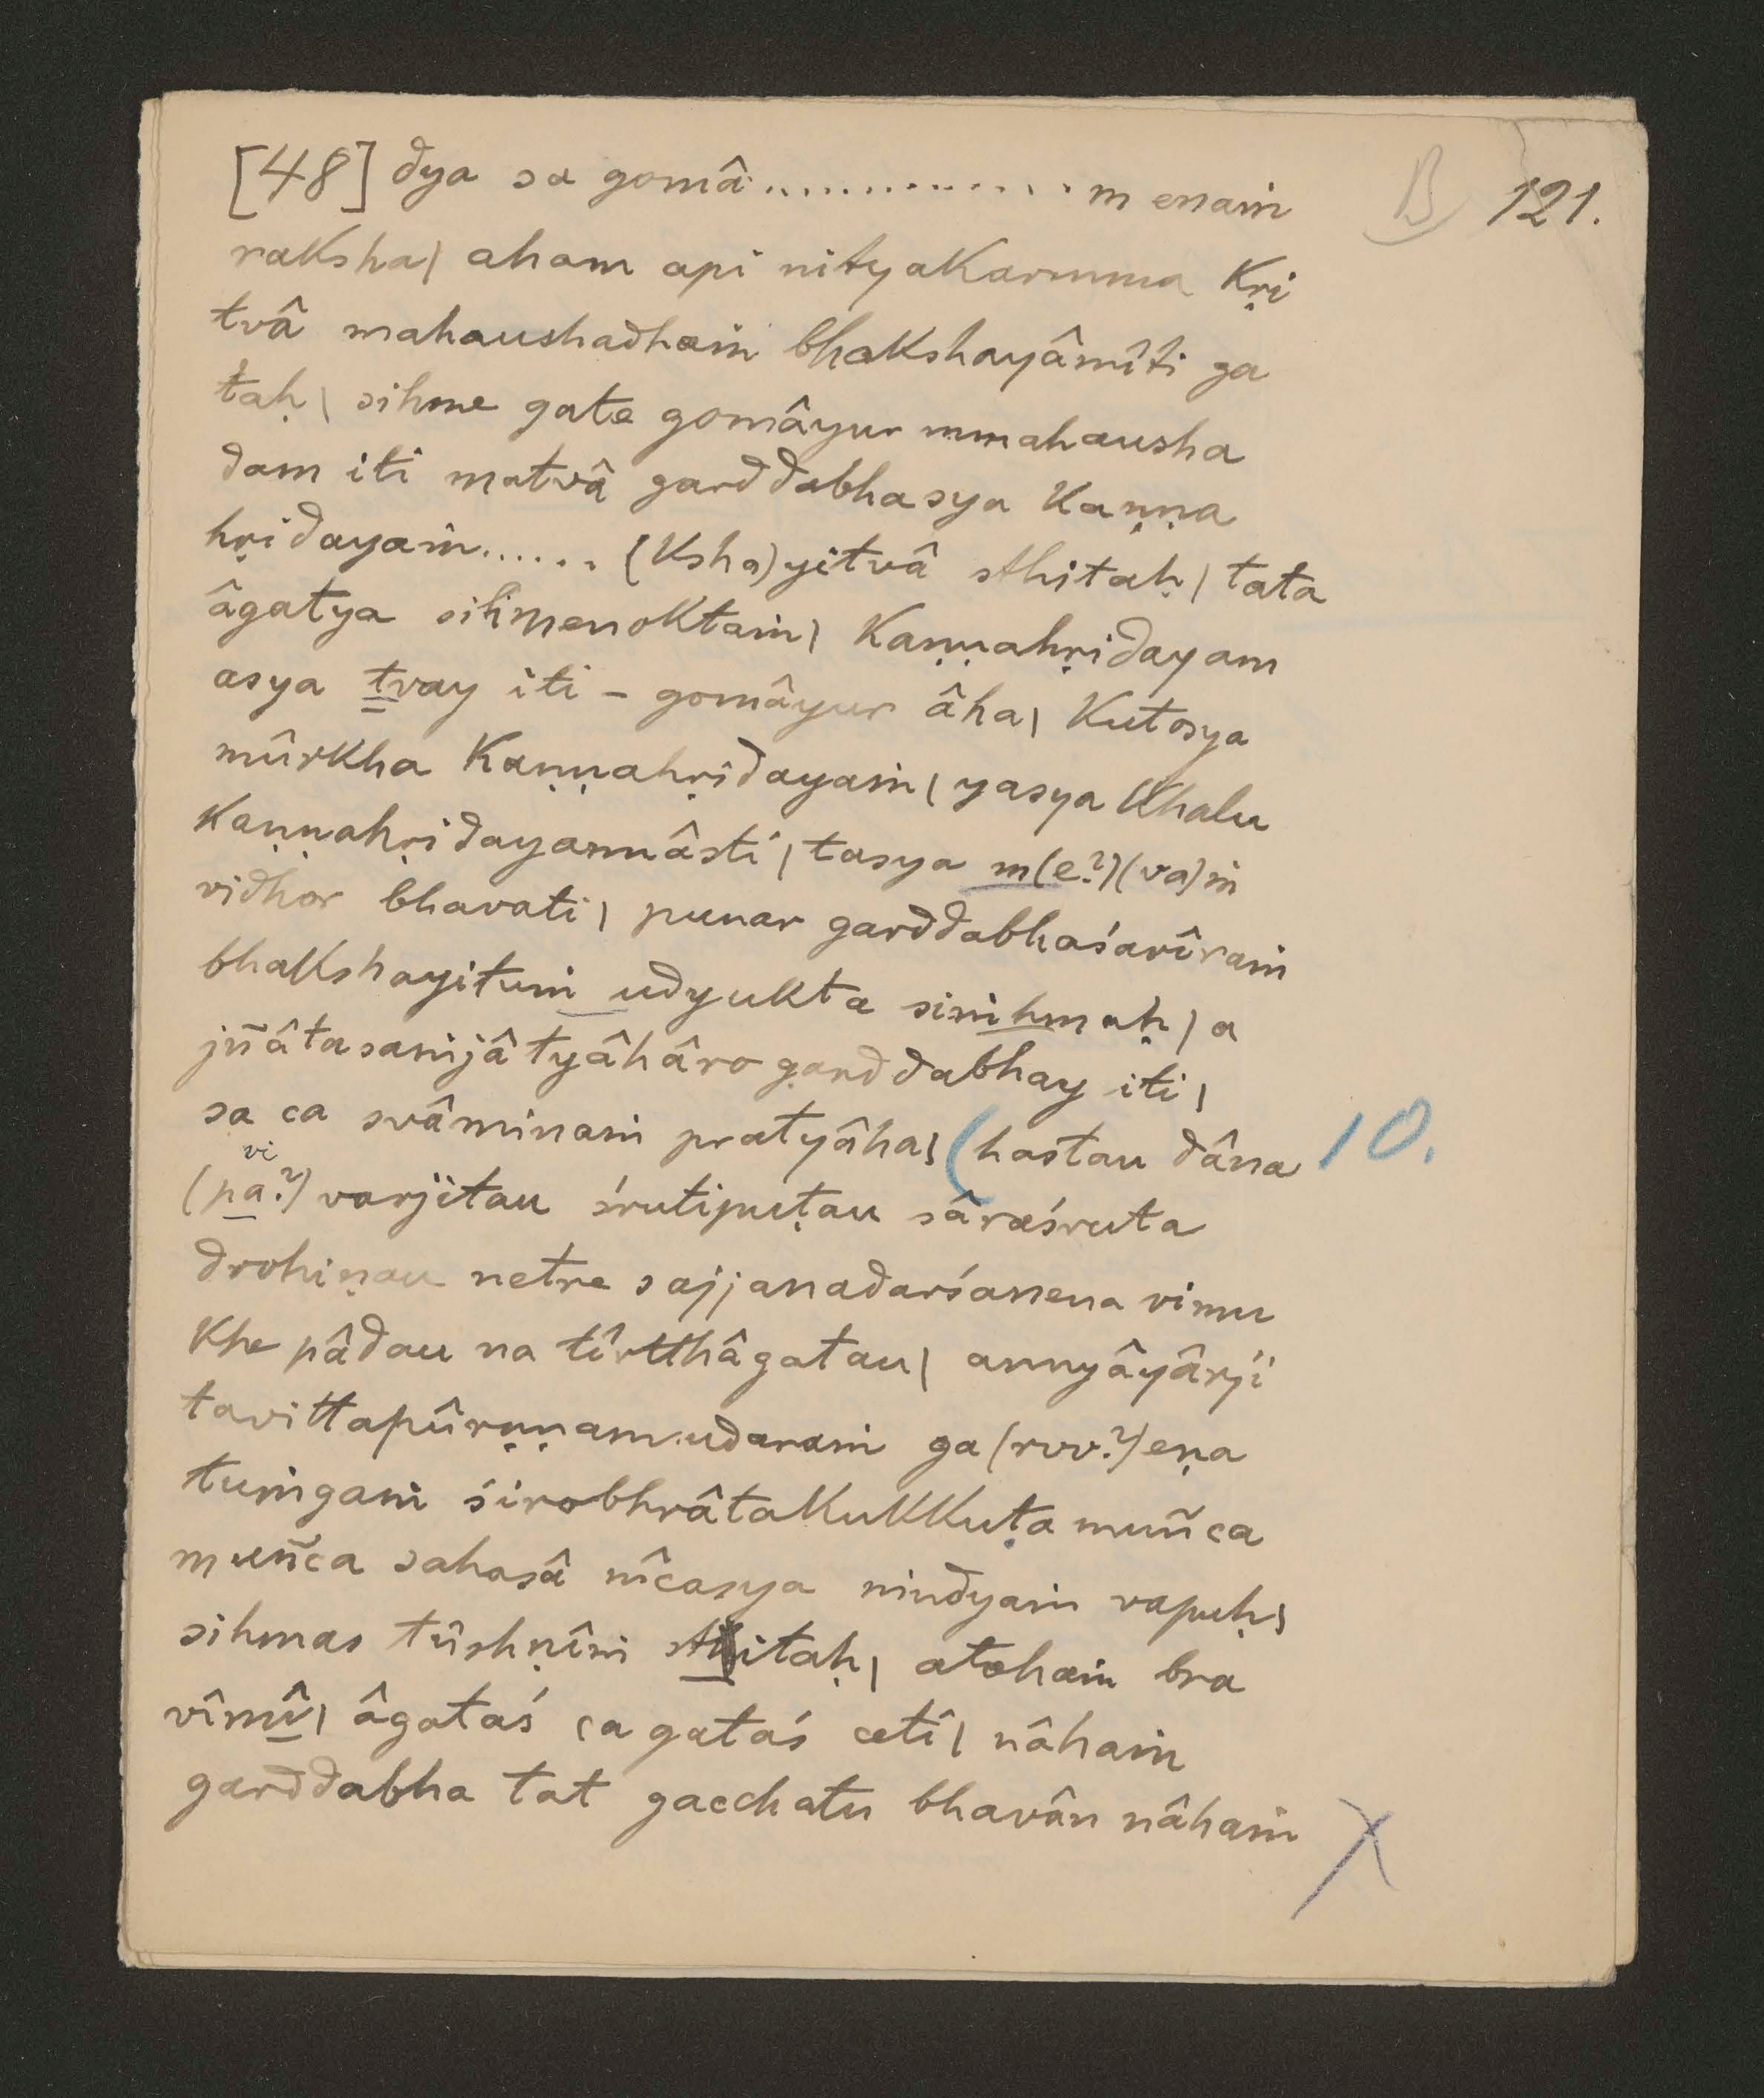 [48] dya sa gomâ .............. m enaṁ
B 121.
raksha| aham api nityakarmma kṛi
tvâ mahaushadhaṁ bhakshayâmîti ga
taḥ| sihme gate gomâyur mmahausha
dam iti matvâ garddabhasya kaṇṇa
hṛidayaṁ ...... (ksha)yitvâ sthitaḥ| tata
âgatya sihmenoktaṁ| kaṇṇahṛidayam
asya tvay iti – gomâyur âha| kutosya
mûrkha kaṇṇahṛidayaṁ| yasya khalu
kaṇṇahṛidayannâsti| tasya m(e?)(va)ṁ
vidhor bhavati| punar garddabhaśarîraṁ
bhakshayituṁ udyukta siṁhmaḥ| a
jñâtasaṁjâtyâhâro garddabhay iti|
sa ca svâminaṁ pratyâha| (hastau dâna 10.
vi
(pa?) varjitau śrutipuṭau sâraśruta
drohiṇau netre sajjanadarśanena vimu
khe pâdau na tîrtthâgatau| annyâyârji
tavittapûrṇṇam udaraṁ ga(rvv?)eṇa
tuṁgaṁ śirobhrâtakukkuṭa muñca
muñca sahasâ nîcasya nindyaṁ vapuḥ|
sihmas tûshṇîṁ sthitaḥ| atohaṁ bra
vîmî| âgataś ca gataś cetî| nâhaṁ
garddabha tat gacchatu bhavân nâhaṁ
X